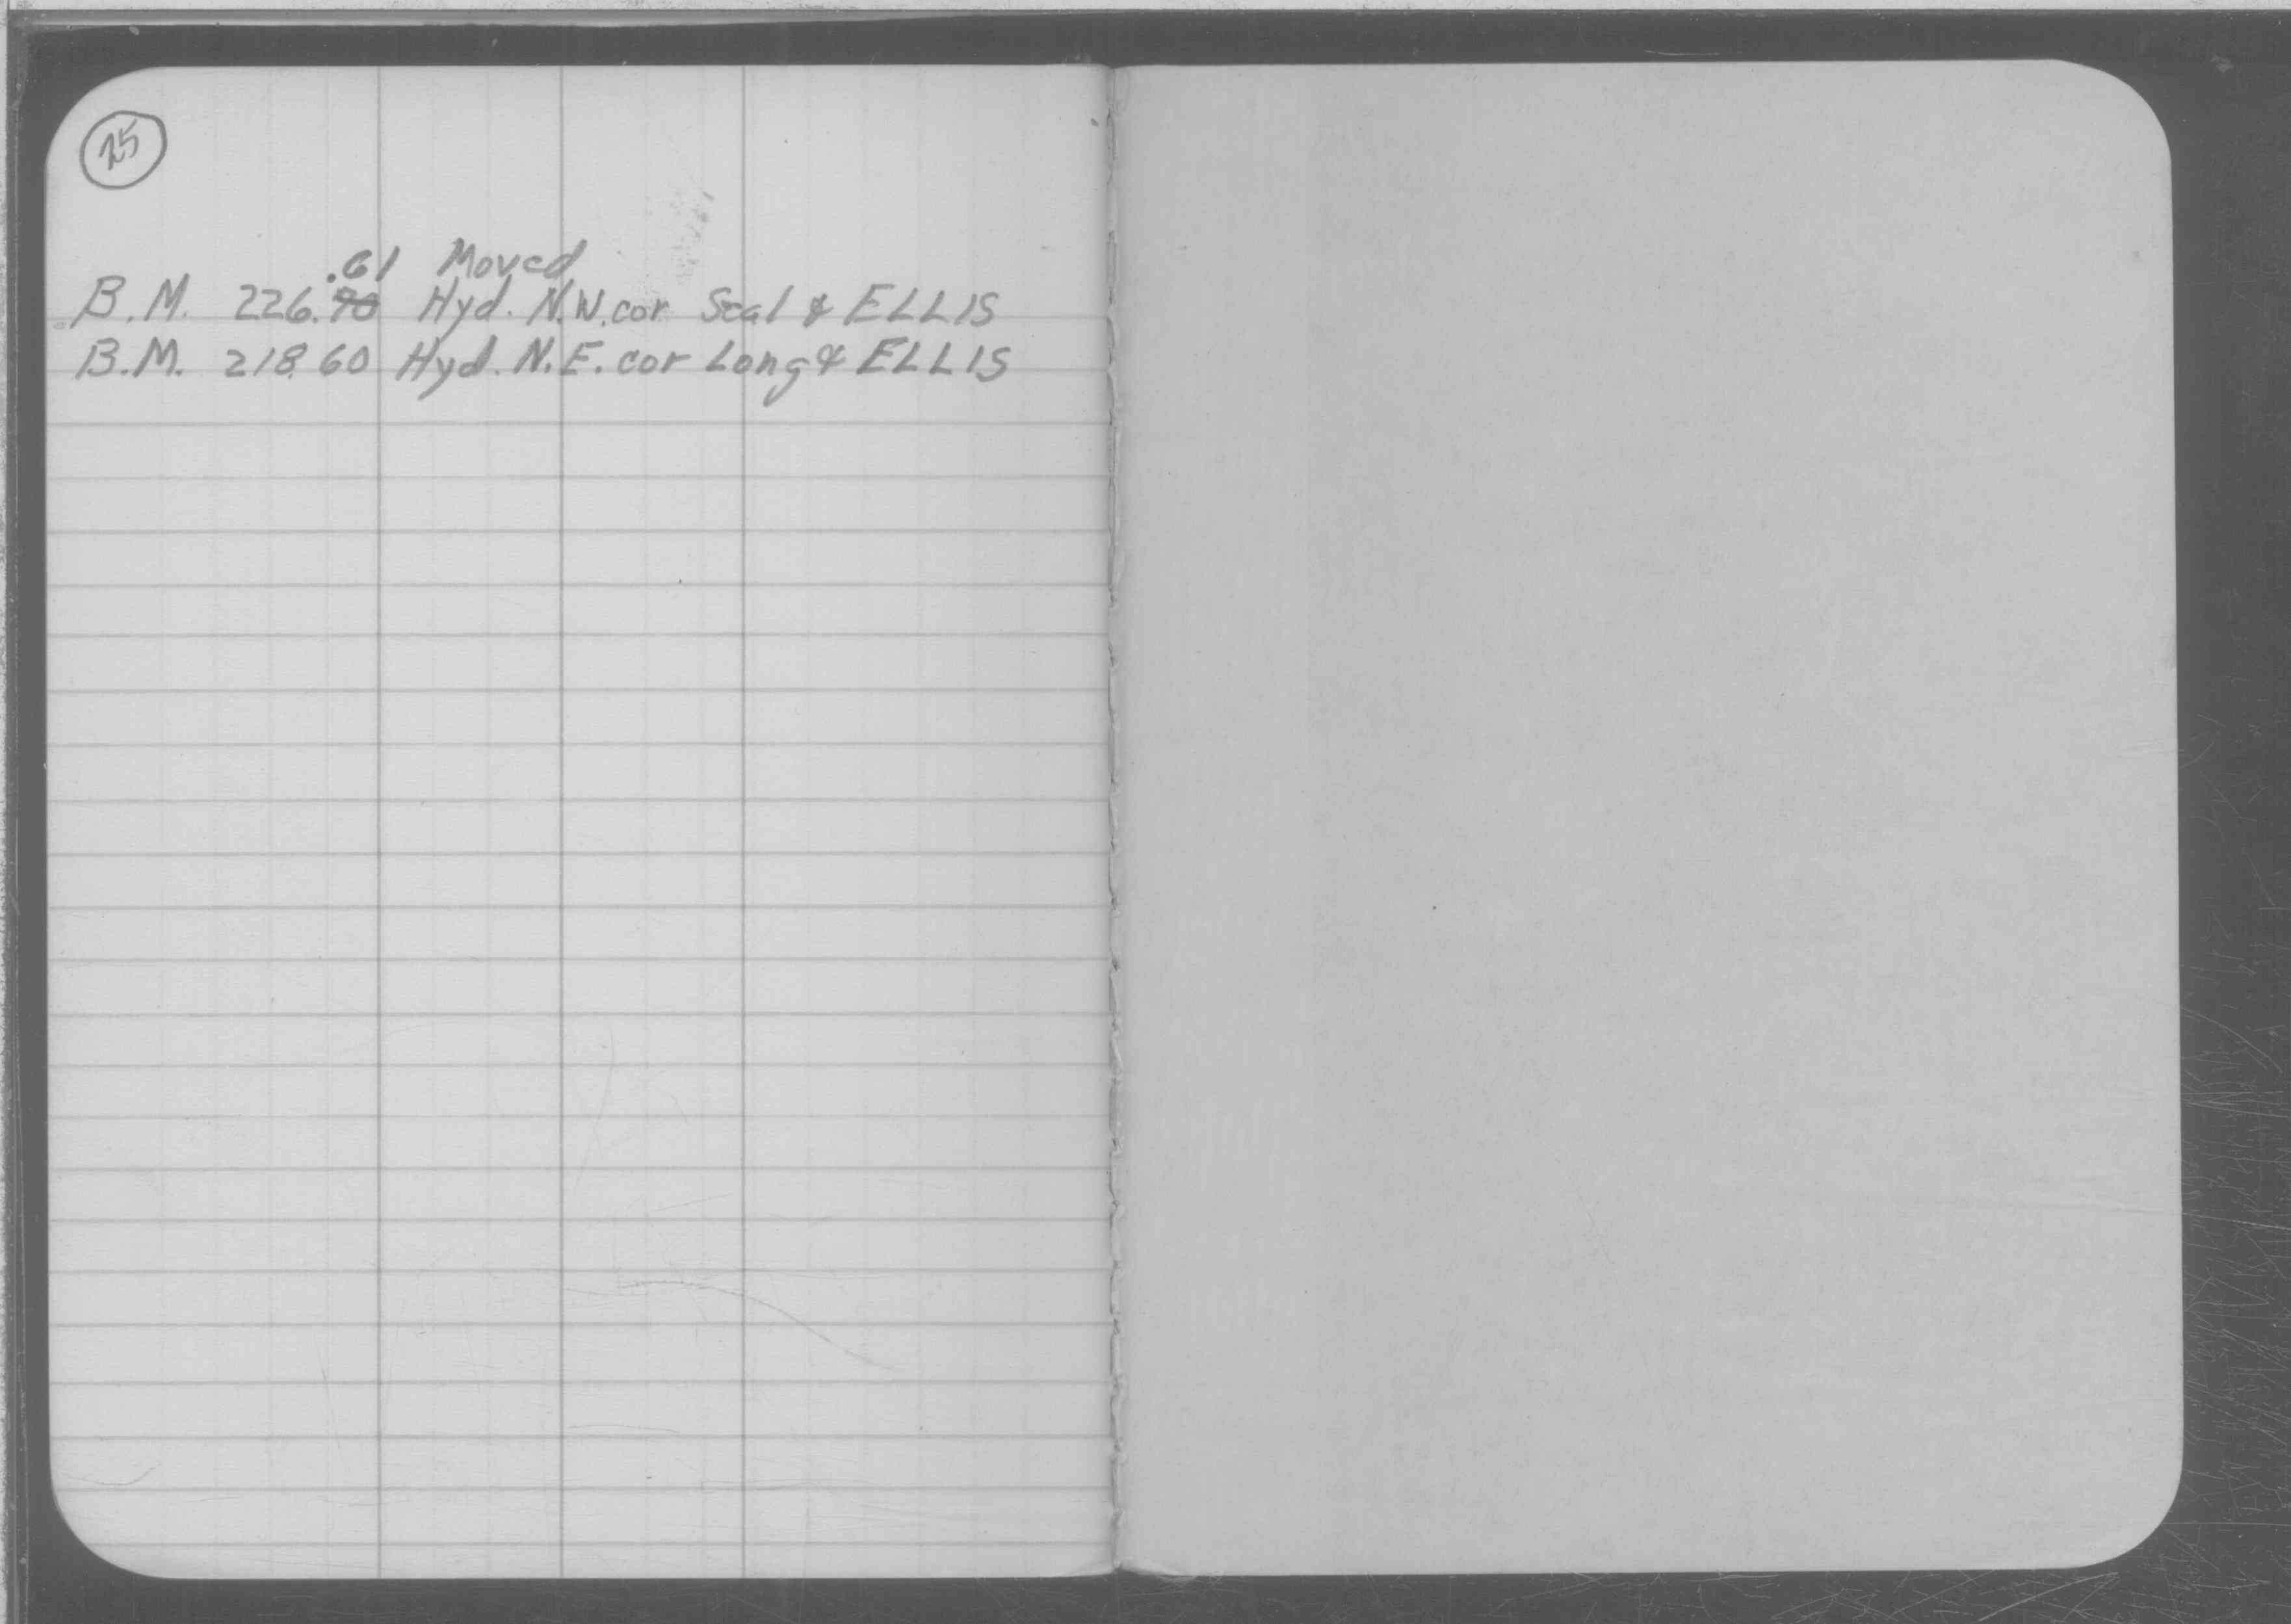 25
.61 Moved
B.M. 226.90 Hyd. N.W. cor Seal & ELLIS
B.M. 218.60 Hyd. N.E. cor Long & ELLIS